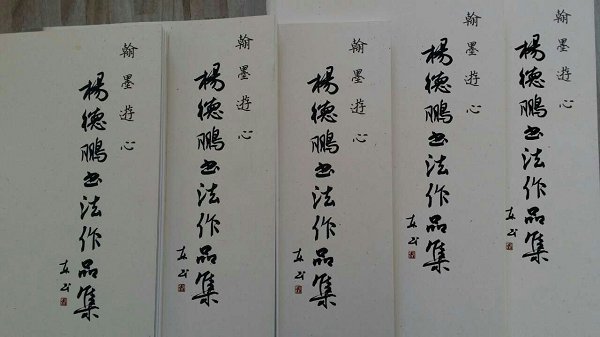 翰墨遊心
楊德鵬书法作品集
翰墨遊心
楊德鵬书法作品集
翰墨遊心
楊德鵬书法作品集
翰墨遊心
楊德鵬书法作品集
翰墨遊心
楊德鵬书法作品集